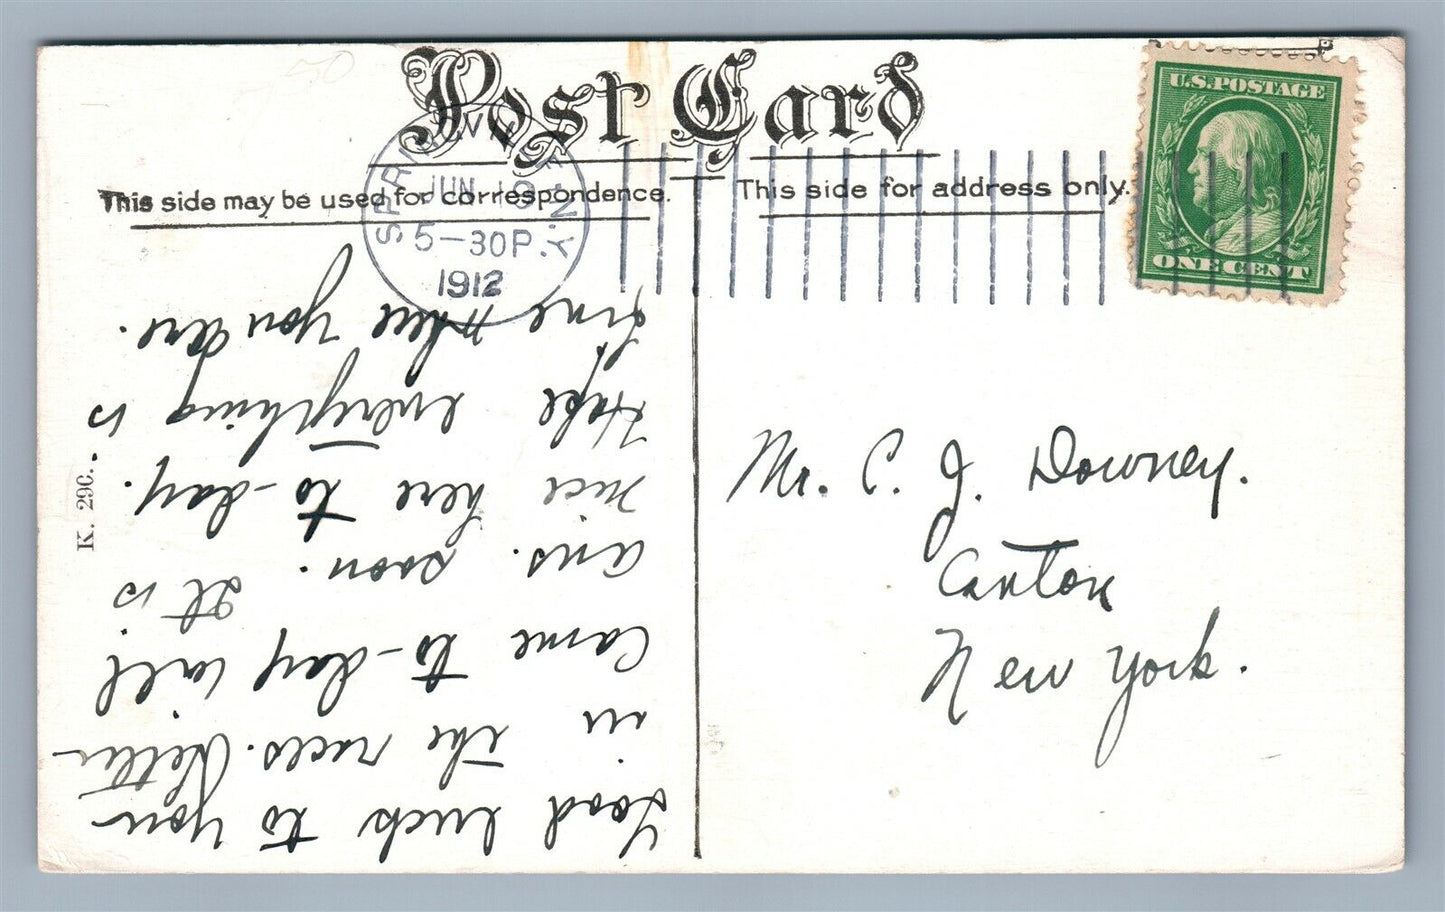 Post Card
This side may be used for correspondence.
This side for address only.
U.S. POSTAGE
ONE CENT
SPRINGVILLE N.Y.
JUN 10
5-30P
1912
K. 290.
Good luck to you
in the races. Letter
came to-day will
ans. soon. It is
nice here to-day.
Hope everything is
fine where you are.
Mr. C. J. Downey.
Canton
New York.